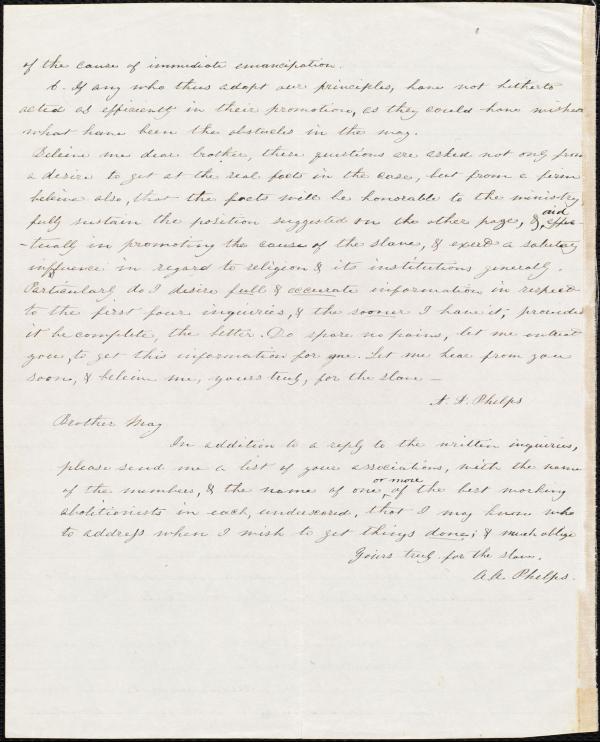 of the cause of immediate emancipation.
6. If any who thus adopt our principles, have not hitherto
acted as efficiently in their promotion, as they could have wished
what have been the obstacles in the way.
Believe me dear brother, these questions are asked not only from
a desire to get at the real facts in the case, but from a firm
believe also, that the facts will be honorable to the ministry
fully sustain the position suggested on the other page, & aid effec-
-tually in promoting the cause of the slave, & exert a salutary
influence in regard to religion & its institutions generally.
Particularly do I desire full & accurate information in respect
to the first four inquiries, & the sooner I have it, provided
it be complete, the better. Do spare no pains, let me entreat
you, to get this information for me. Let me hear from you
soon, & believe me, yours truly, for the slave —
A. A. Phelps
Brother May
In addition to a reply to the written inquiries,
please send me a list of your associations, with the name
of the members, & the name of one or more of the best working
abolitionists in each, underscored, that I may know who
to address when I wish to get things done; & much oblige
Yours truly for the slave.
A.A. Phelps.